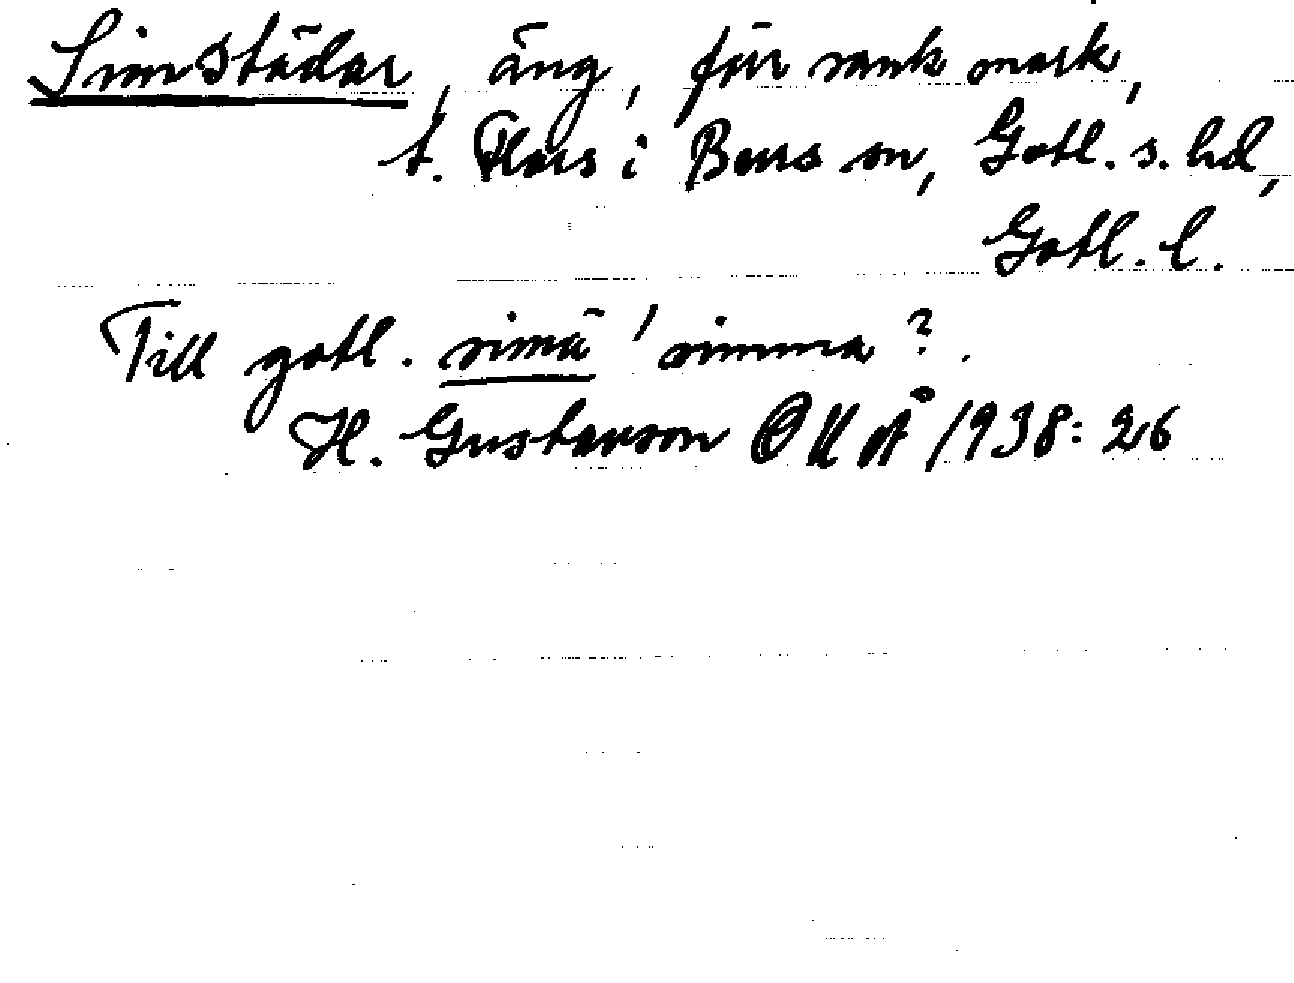 Simstädar, äng, förr sank mark,
t. Flors i Burs sn, Gotl. s. hd,
Gotl. l.
Till gotl. simä 'simma'?.
H. Gustavson 1938: 26